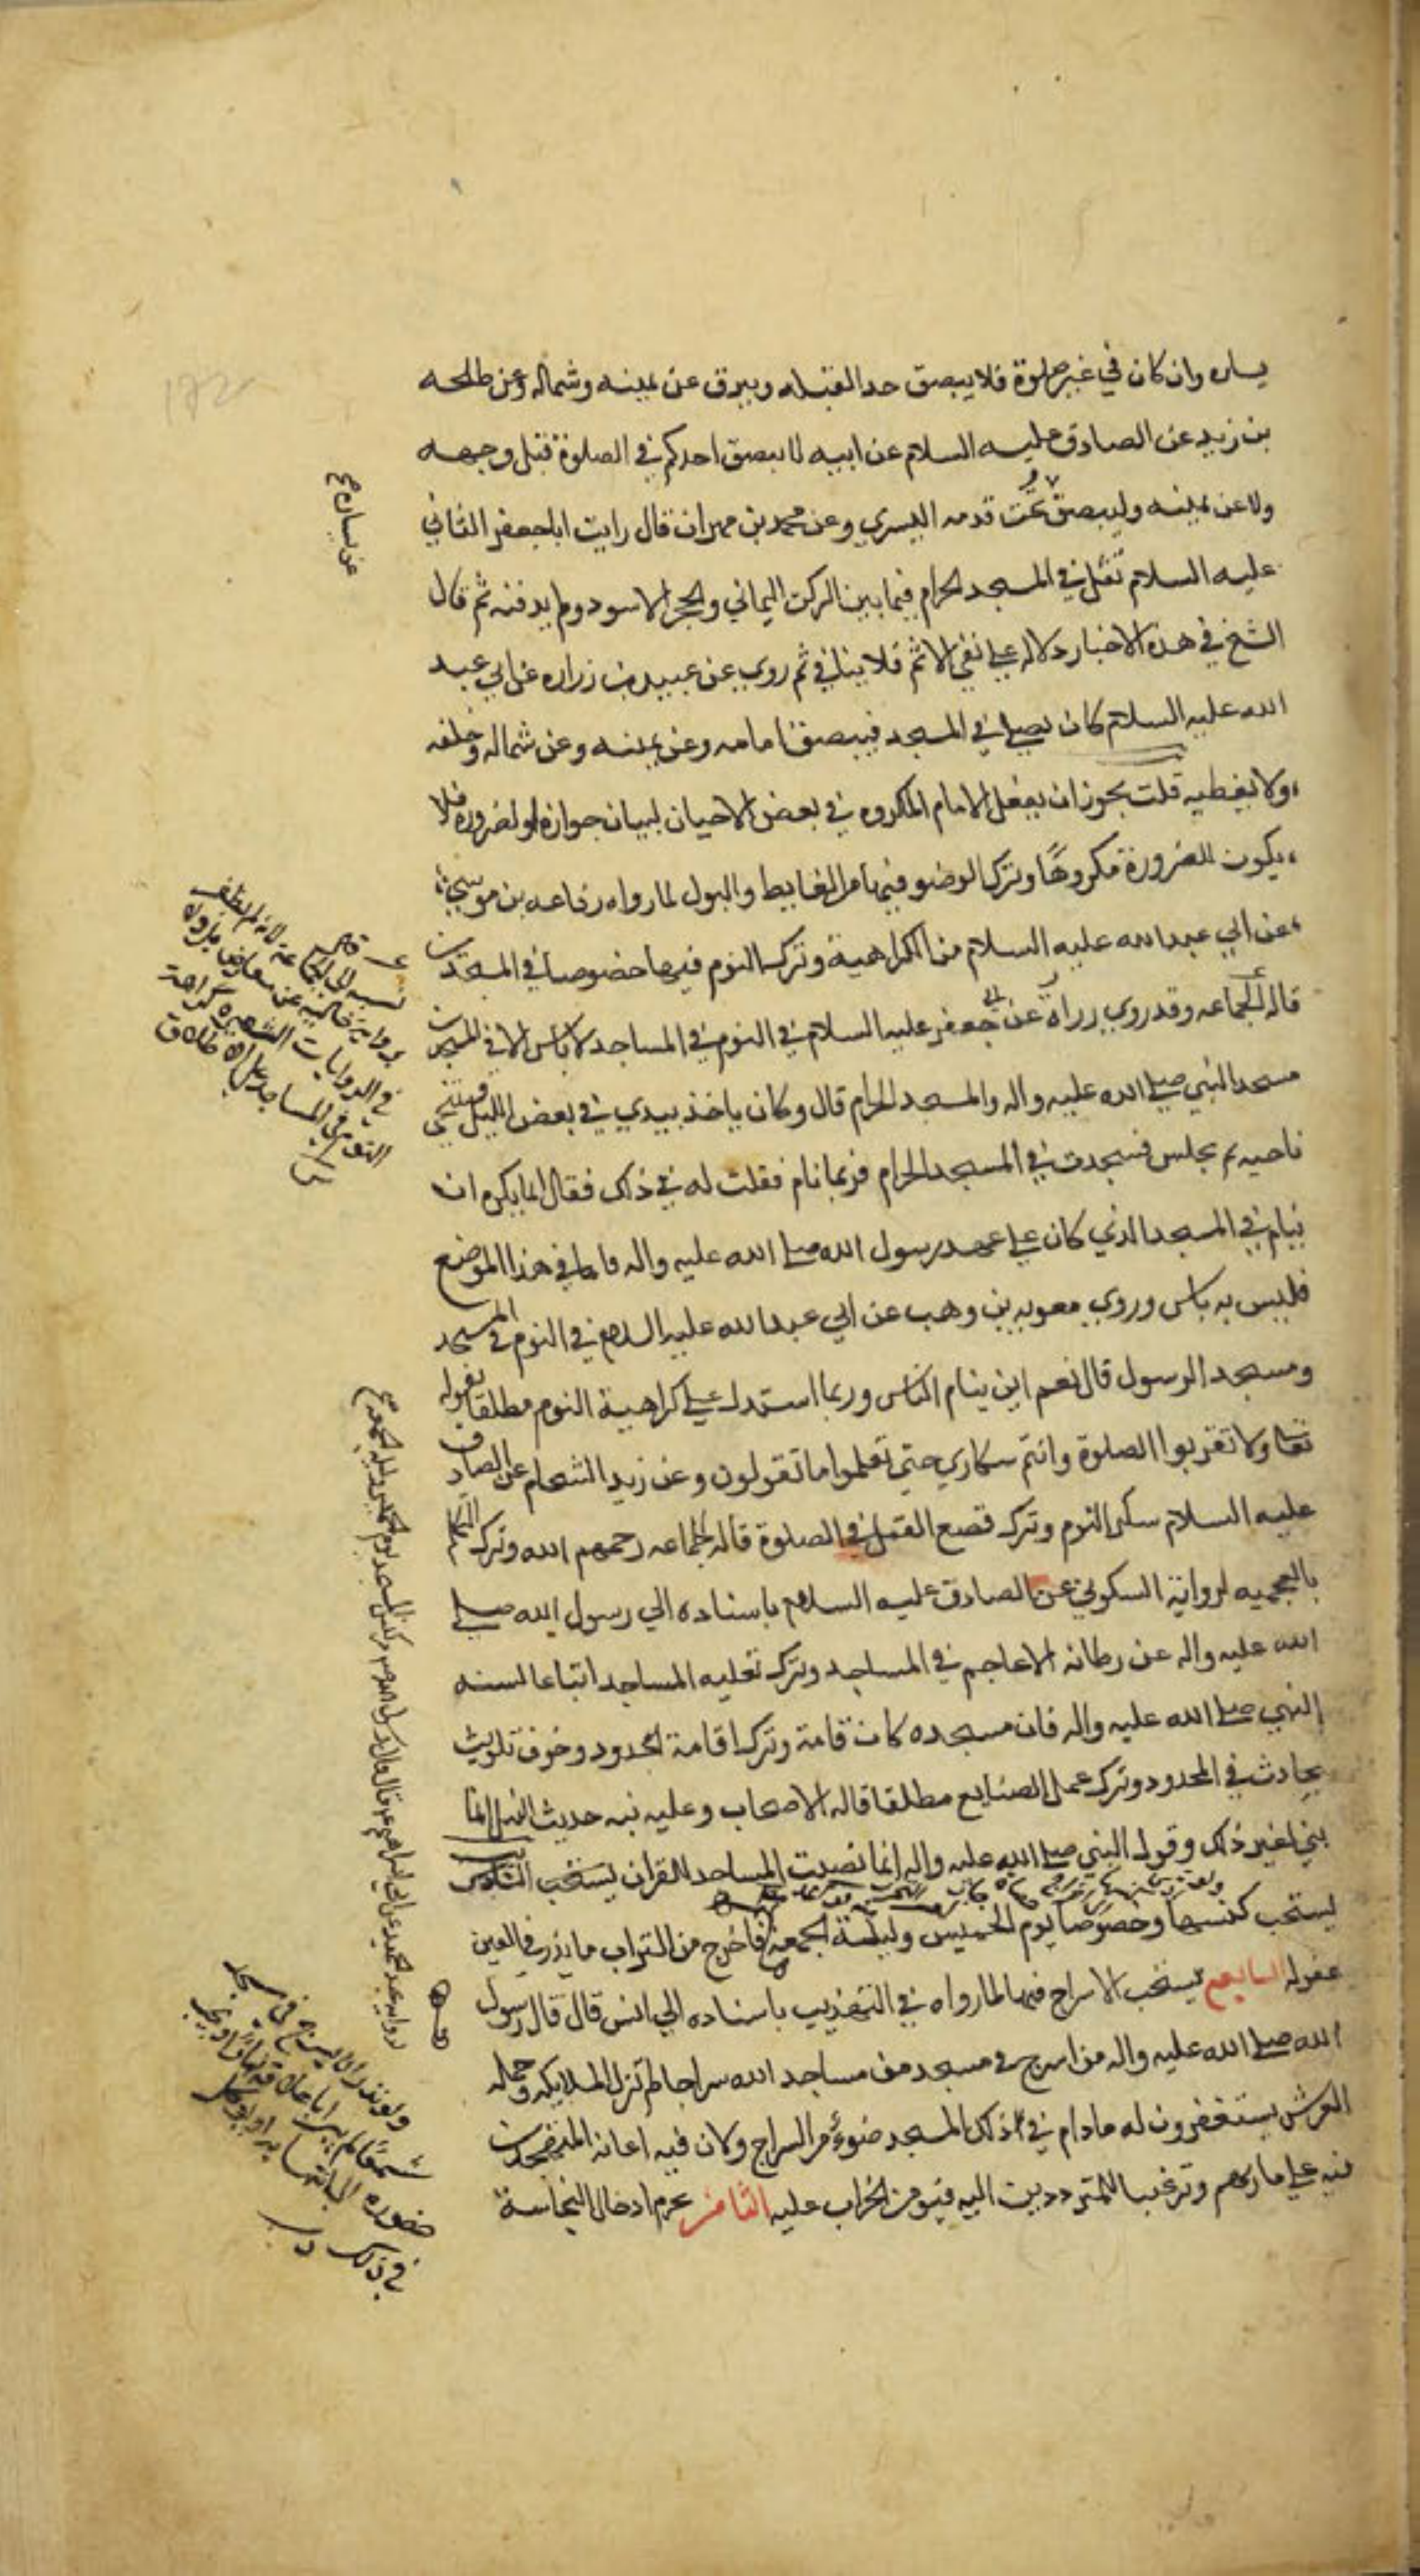 يساره وان كان في غير صلوة فلا يبصق حد القبله ويبزق عن يمينه وشماله وعن طلحه
بن زيد عن الصادق عليه السلام عن ابيه لا يبصق احدكم في الصلوة قبل وجهه
ولا عن يمينه وليبصق تحت قدمه اليسري وعن محمد بن مهران قال رايت ابا جعفر الثاني
عليه السلام تفل في المسجد الحرام فيما بين الركن اليماني والحجر الاسود ولم يدفنه ثم قال
الشيخ في هذه الاخبار دلاله علي نفي الاثم فلا ينافي ثم روي عن عبيد بن زراره عن ابي عبد
الله عليه السلام كان يصلي في المسجد فيبصق امامه وعن يمينه وعن شماله وخلفه
ولا يغطيه قلت يجوز ان يفعل الامام المكروه في بعض الاحيان لبيان جوازه او لضروره فلا
يكون للضرورة مكروها وترك الوضو فيها من الغايط والبول لما رواه رفاعه بن موسي
عن ابي عبد الله عليه السلام من الكراهية وترك النوم فيها خصوصا في المسجدين
قاله الجماعه وقد روي زرارة عن ابي جعفر عليه السلام في النوم في المساجد لا باس الا في المسجدين
مسجد النبي صلي الله عليه واله والمسجد الحرام قال وكان ياخذ بيدي في بعض الليل فيتنحي
ناحيه ثم يجلس فيتحدث في المسجد الحرام فربما نام فقلت له في ذلك فقال انما يكره ان
ينام في المسجد الذي كان علي عهد رسول الله صلي الله عليه واله فاما في هذا الموضع
فليس به باس وروي معويه بن وهب عن ابي عبد الله عليه السلام في النوم في المسجد
ومسجد الرسول قال نعم اين ينام الناس وربما استدل علي كراهية النوم مطلقا بقوله
تعا ولا تقربوا الصلوة وانتم سكاري حتي تعلموا ما تقولون وعن زيد الشحام عن الصادق
عليه السلام سكر النوم وترك قصع القمل في الصلوة قاله الجماعه رحمهم الله وترك التكلم
بالعجميه لرواية السكوني عن الصادق عليه السلام باسناده الي رسول الله صلي
الله عليه واله عن رطانه الاعاجم في المساجد وترك تعليه المساجد اتباعا لسنه
النبي صلي الله عليه واله فان مسجده كان قامة وترك اقامة الحدود وخوف تلويث
بحادث في المحدود وترك عمل الصنايع مطلقا قاله الاصحاب وعليه نبه حديث النبل انما
بني لغير ذلك وقوله النبي صلي الله عليه واله انما نصبت المساجد للقران يستحب السادس
يستحب كنسها وخصوصا يوم الخميس وليلة الجمعه فاخرج من التراب ما يذر في العين
غفر له السابع يستحب الاسراج فيها لما رواه في التهذيب باسناده الي انس قال قال رسول
الله صلي الله عليه واله من اسرج في مسجد من مساجد الله سراجا لم تزل الملايكه وحمله
العرش يستغفرون له ما دام في ذلك المسجد ضوء من السراج ولان فيه اعانه المتهجدين
فيه علي ماربهم وترغيبا للمترددين اليه فيؤمن الخراب عليه الثامن يحرم ادخال النجاسة
عن يساره
في الروايات الشهيره كراهة
النوم في المساجد علي الاطلاق
في ذلك